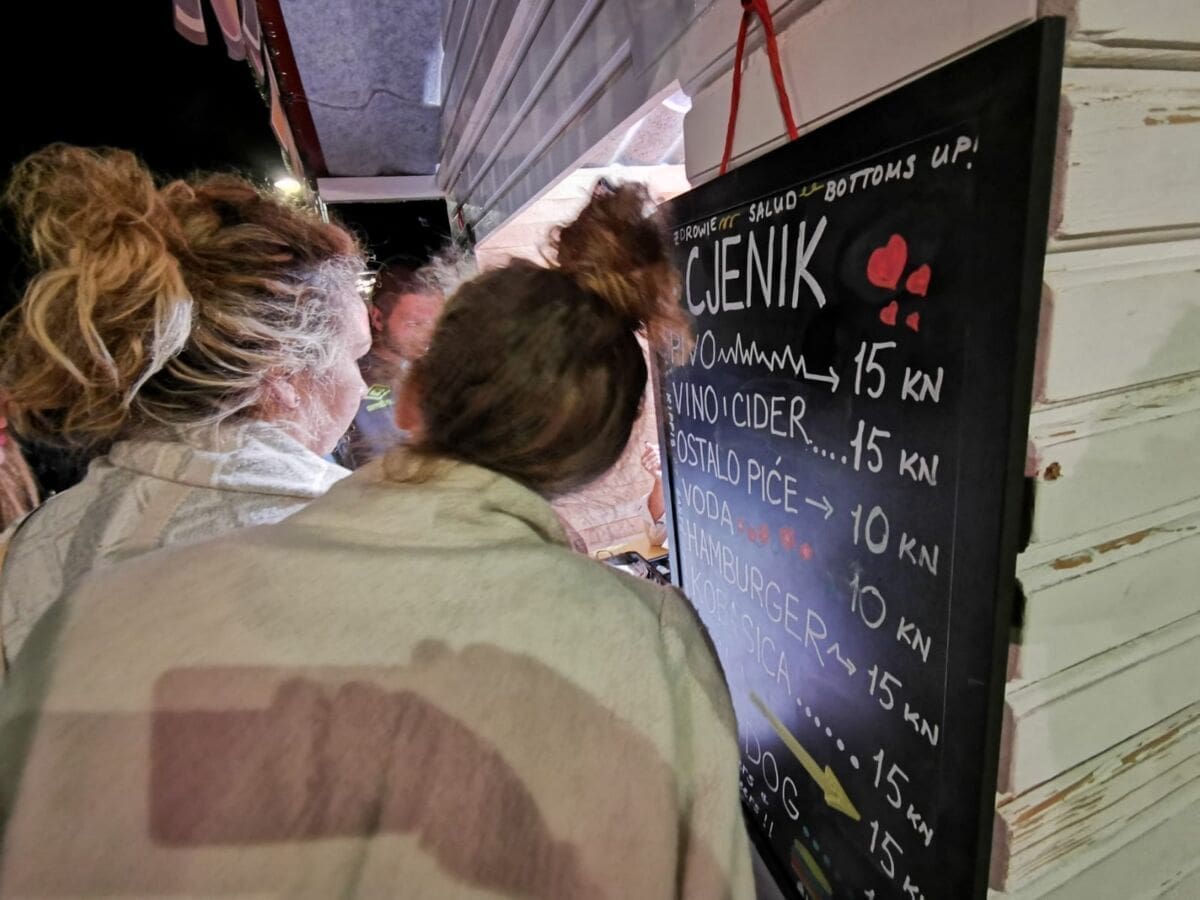 ZDROWIE SALUD BOTTOMS UP!
CJENIK
PIVO 15 KN
VINO I CIDER.... 15 KN
OSTALO PIĆE → 10 KN
VODA 10 KN
HAMBURGER → 15 KN
KOBASICA ....... 15 KN
DOG 15 KN